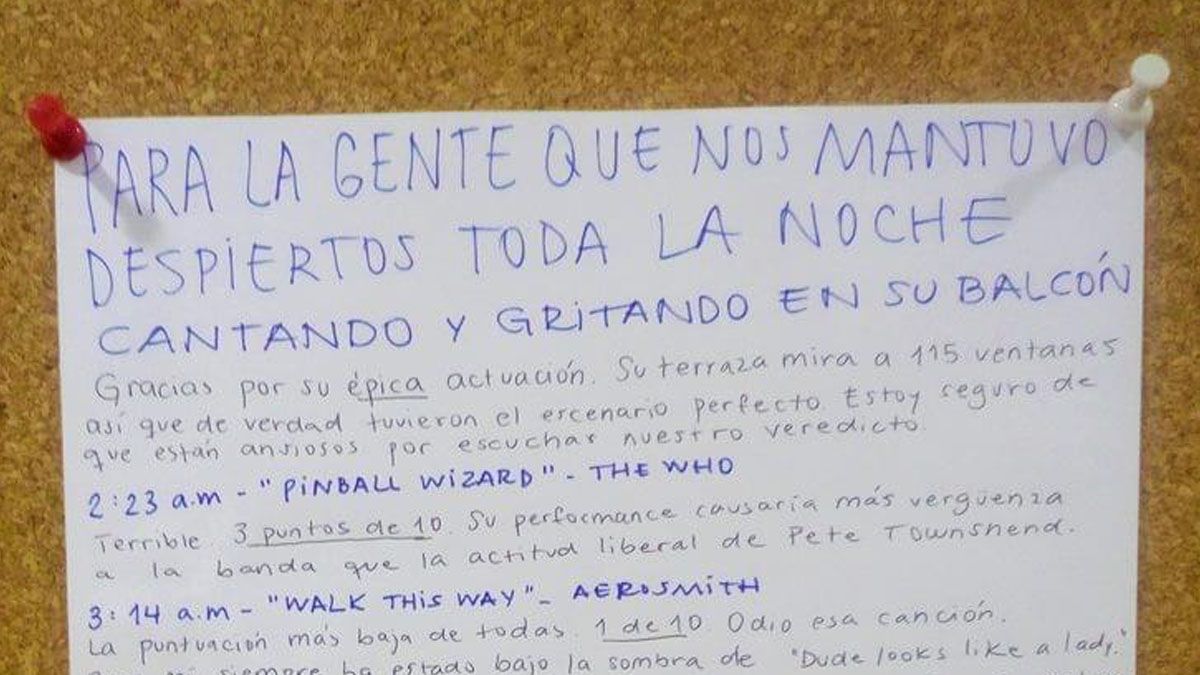 PARA LA GENTE QUE NOS MANTUVO
DESPIERTOS TODA LA NOCHE
CANTANDO Y GRITANDO EN SU BALCÓN
Gracias por su épica actuación. Su terraza mira a 115 ventanas
así que de verdad tuvieron el escenario perfecto. Estoy seguro de
que están ansiosos por escuchar nuestro veredicto.
2:23 a.m - "PINBALL WIZARD" - THE WHO
Terrible. 3 puntos de 10. Su performance causaría más vergüenza
a la banda que la actitud liberal de Pete Townshend.
3:14 a.m - "WALK THIS WAY" - AEROSMITH
La puntuación más baja de todas. 1 de 10. Odio esa canción.
siempre ha estado bajo la sombra de "Dude looks like a lady."